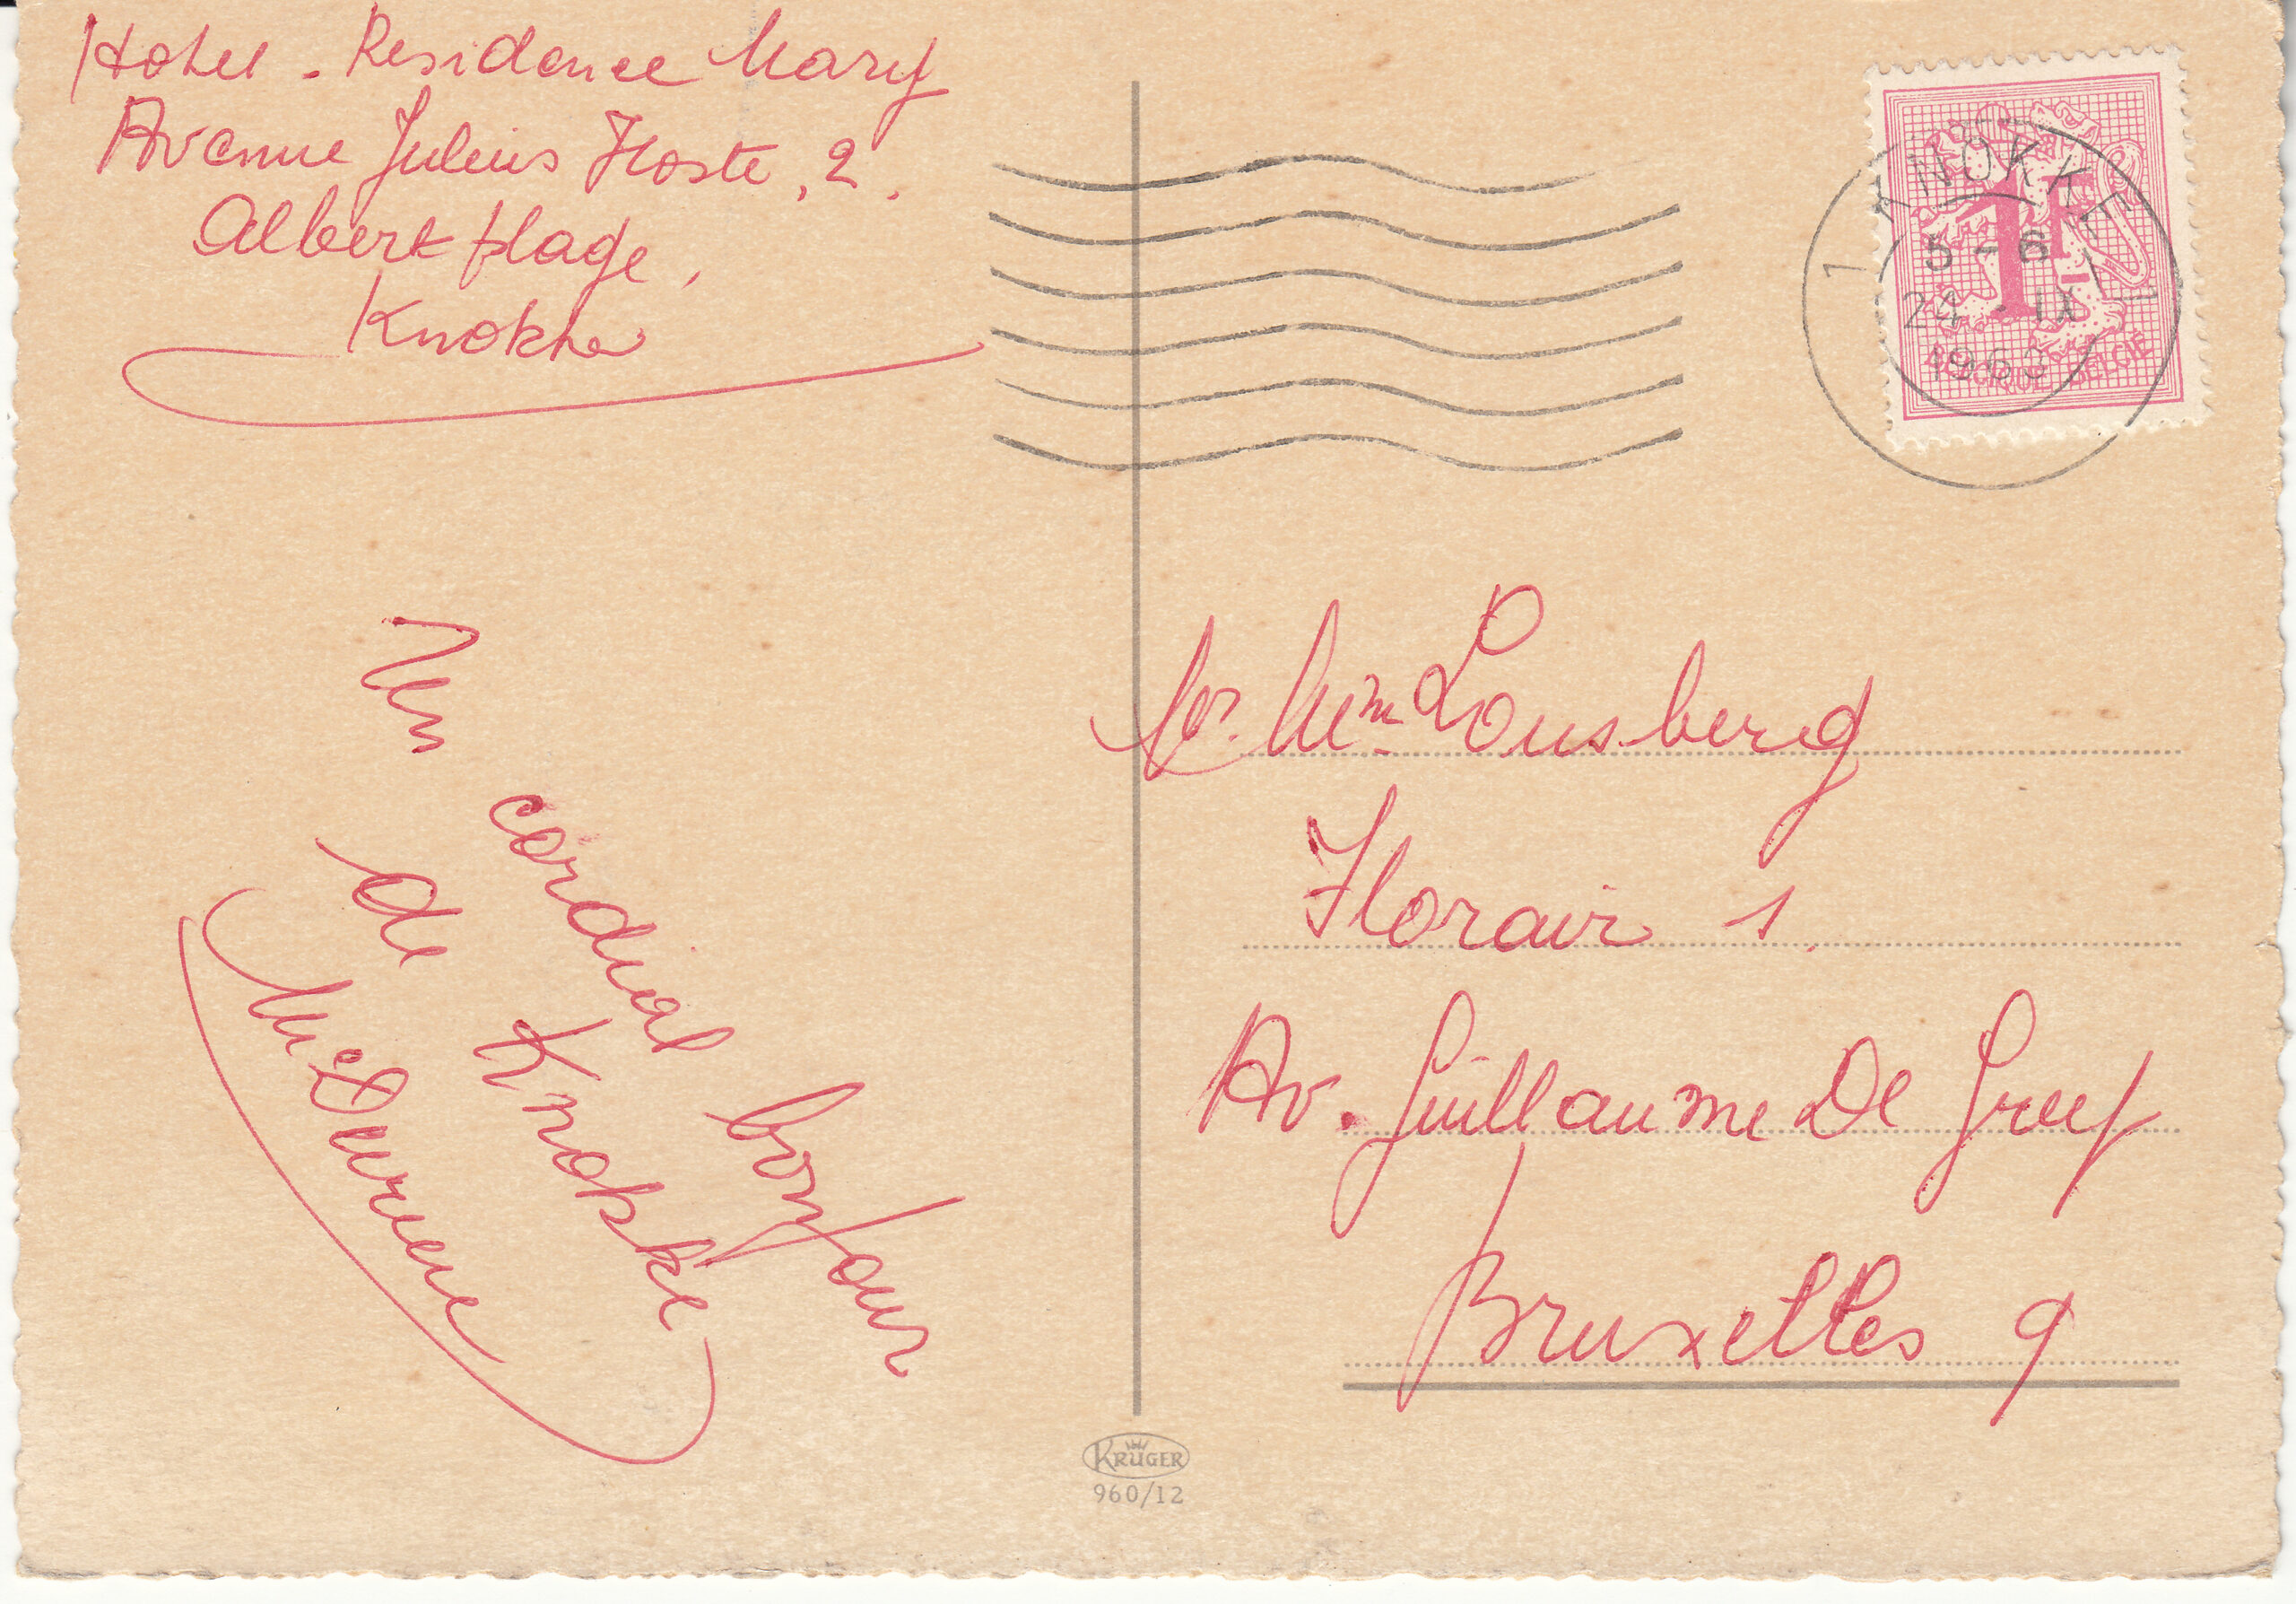 Hotel - Residence Mary
Avenue Julius Hoste, 2.
Albert plage,
Knokke
Un cordial bonjour
de Knokke
Mc Devriese
Mr. Mme Lousberg
Florair 1.
Av. Guillaume De Greef
Bruxelles 9
1 KNOKKE 1
5-6
24 · IX
1963
1F
BELGIQUE BELGIE
KRÜGER
960/12